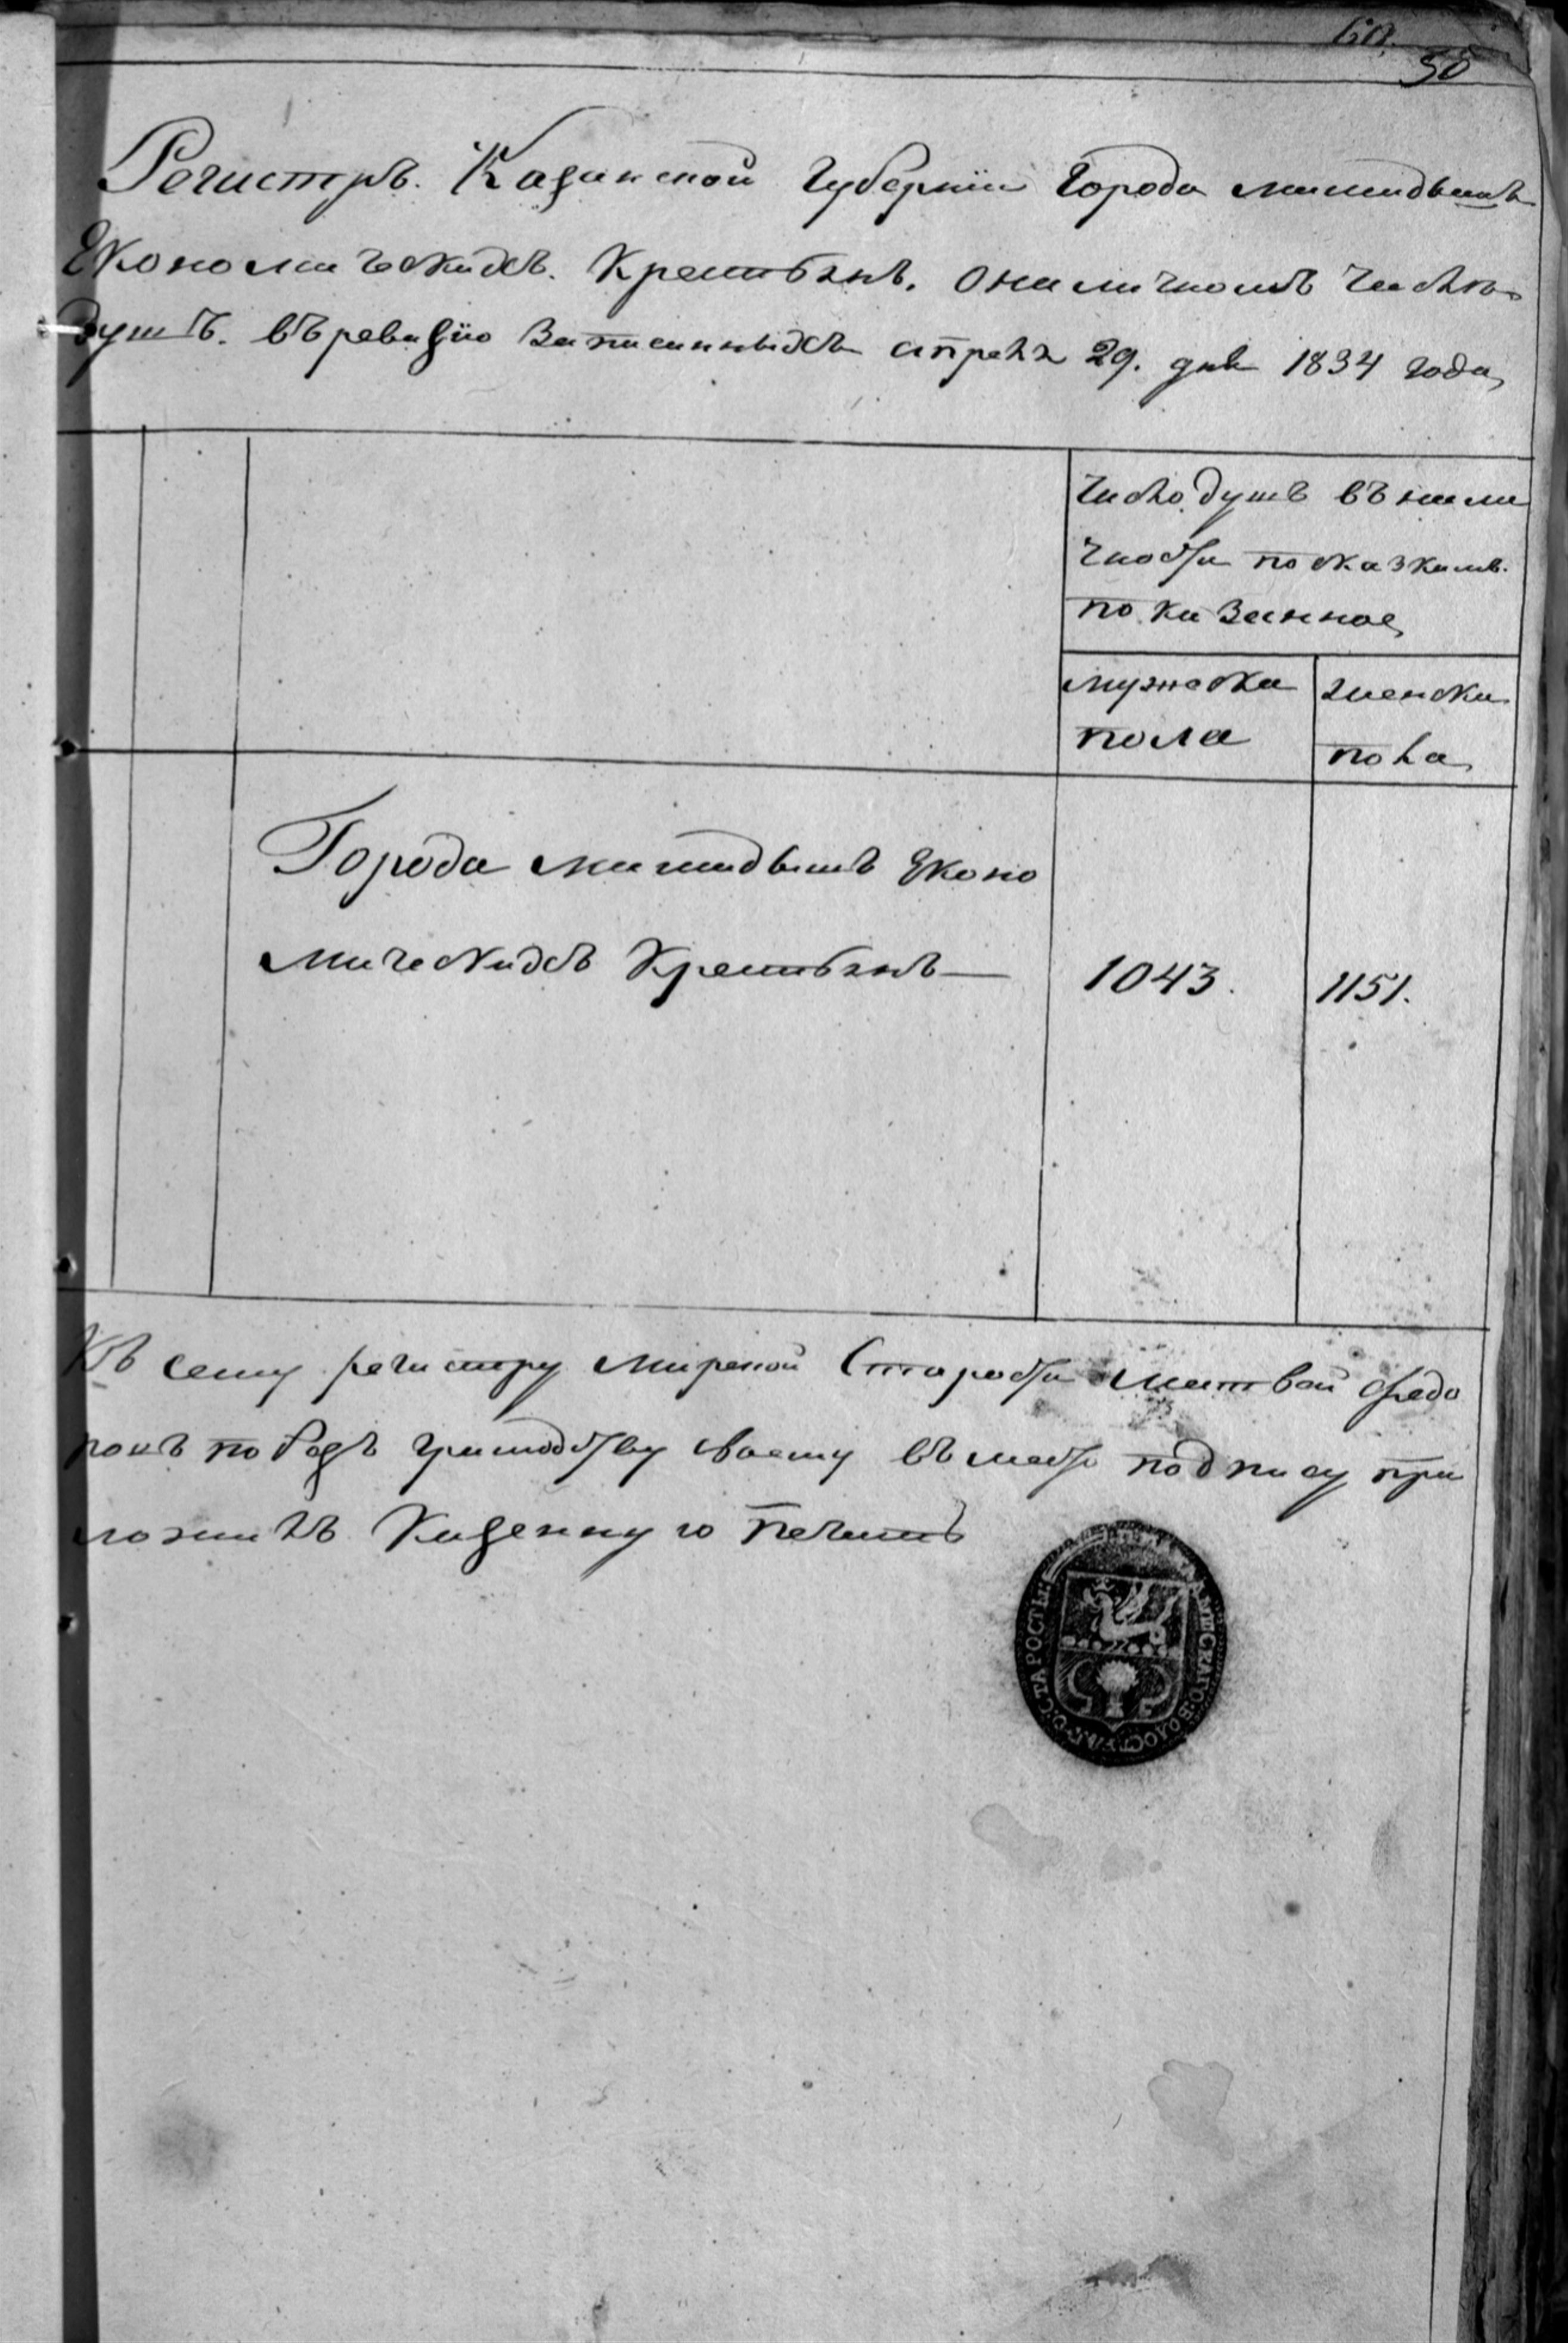 50
Регистръ. Казанской Губернїи Города мамадышъ
Економическихъ. Крестьянъ. о наличномъ числѣ
душъ. въ ревизїю записанныхъ апреля 29. дня 1834 года
число душъ въ нали
чности по сказкамъ.
показанное
мужеска
пола
женска
пола
Города мамадышъ Еконо
мическихъ Крестьянъ
1043.
1151.
Къ сему регистру мирской Староста матвей федо
ровъ
своему въместо подпису при
ложилъ Казенную печать
СТАРОСТЫ ВОЛОСТИ